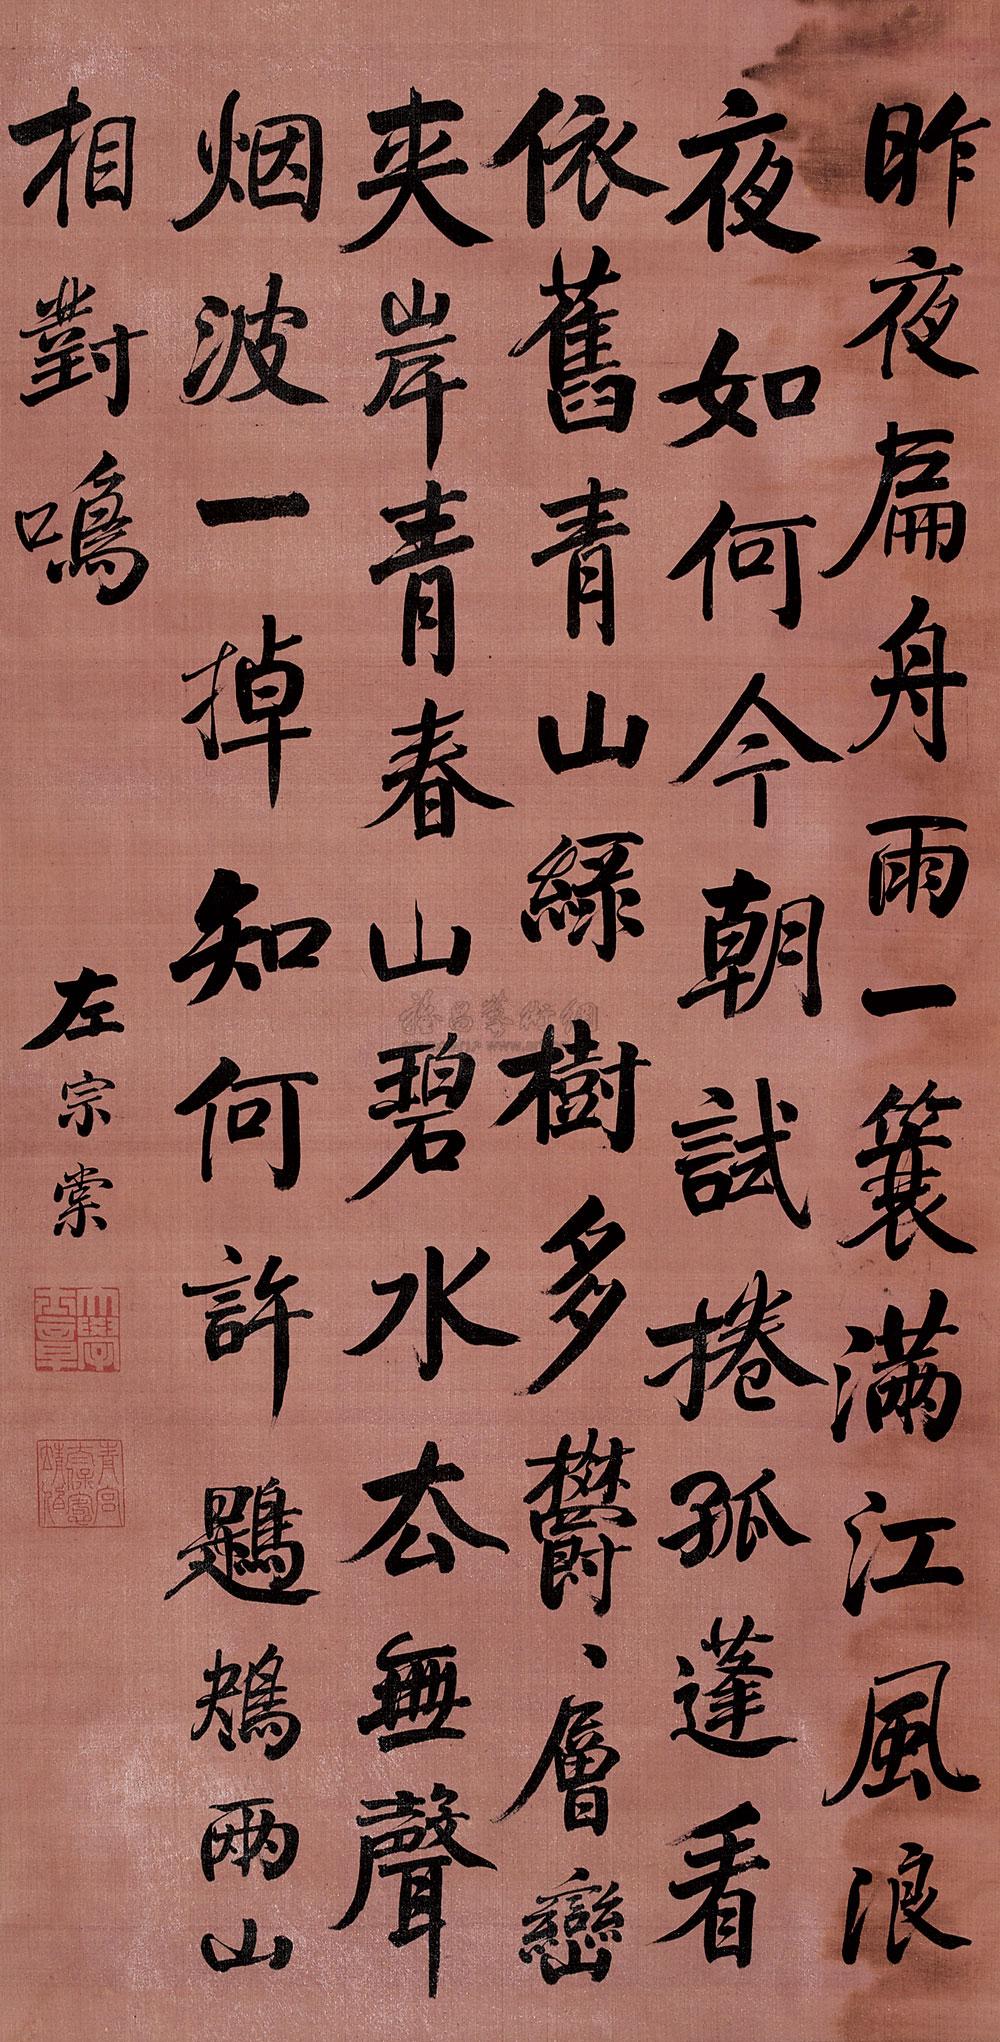 昨夜扁舟雨一簑满江風浪
夜如何今朝試捲孤蓬看
依舊青山緑樹多欝、層巒
夾岸青春山碧水去無聲
烟波一掉知何許鶗鴂兩山
相對鳴
左宗棠